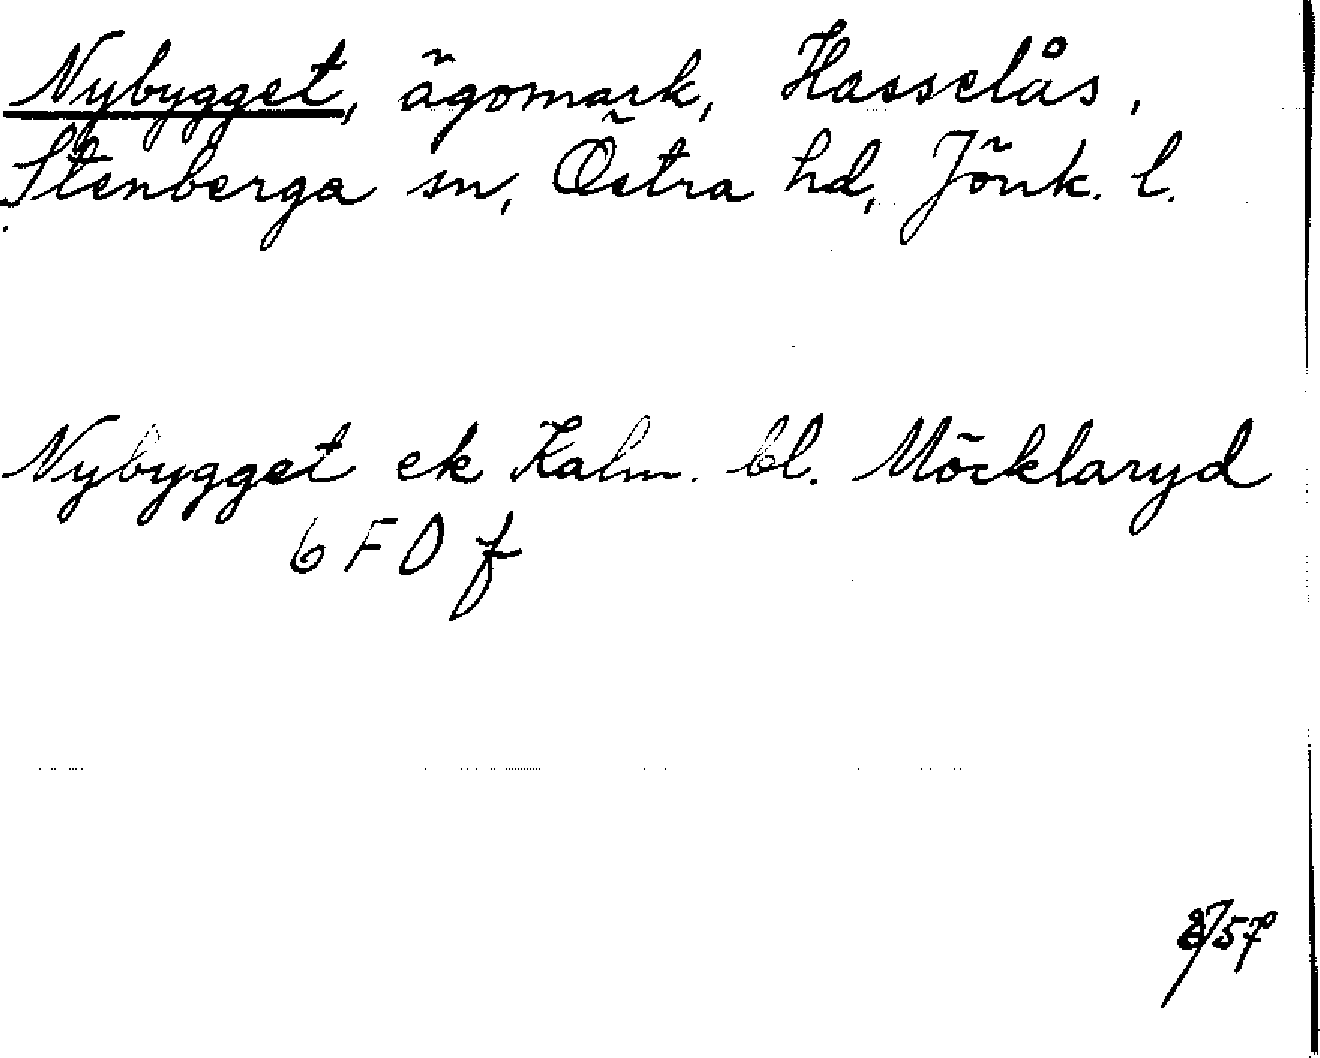 Nybygget, ägomark, Hasselås,
Stenberga sn, Östra hd, Jönk. l.
Nybygget ek Kalm. bl. Möcklaryd
6 F D f